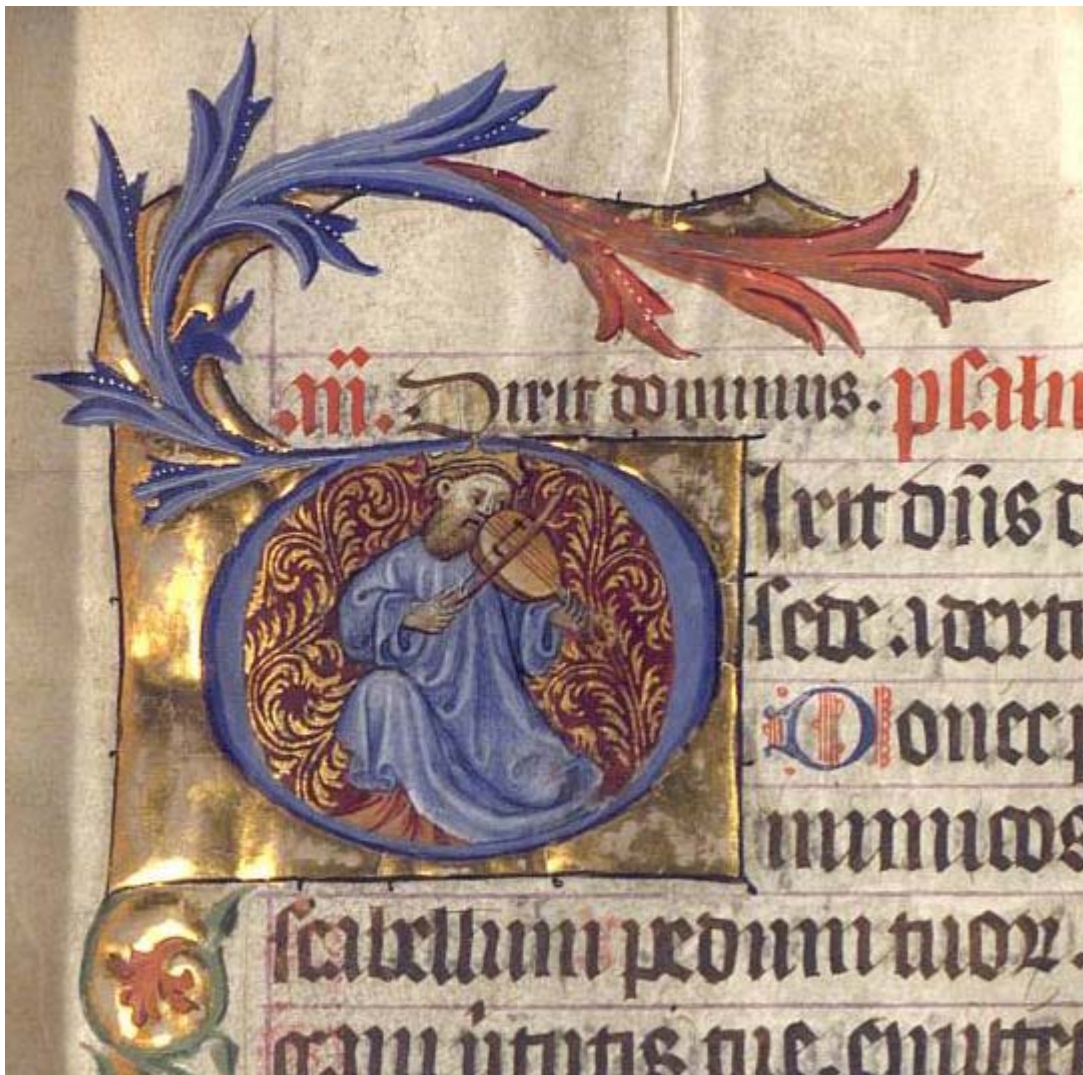 .iii. Dixit dominus. psalm
DIxit dñs d
sede. a dextri
Donec p
inimicos
scabellum pedum tuoꝝ.
uirtutis tue. emittet